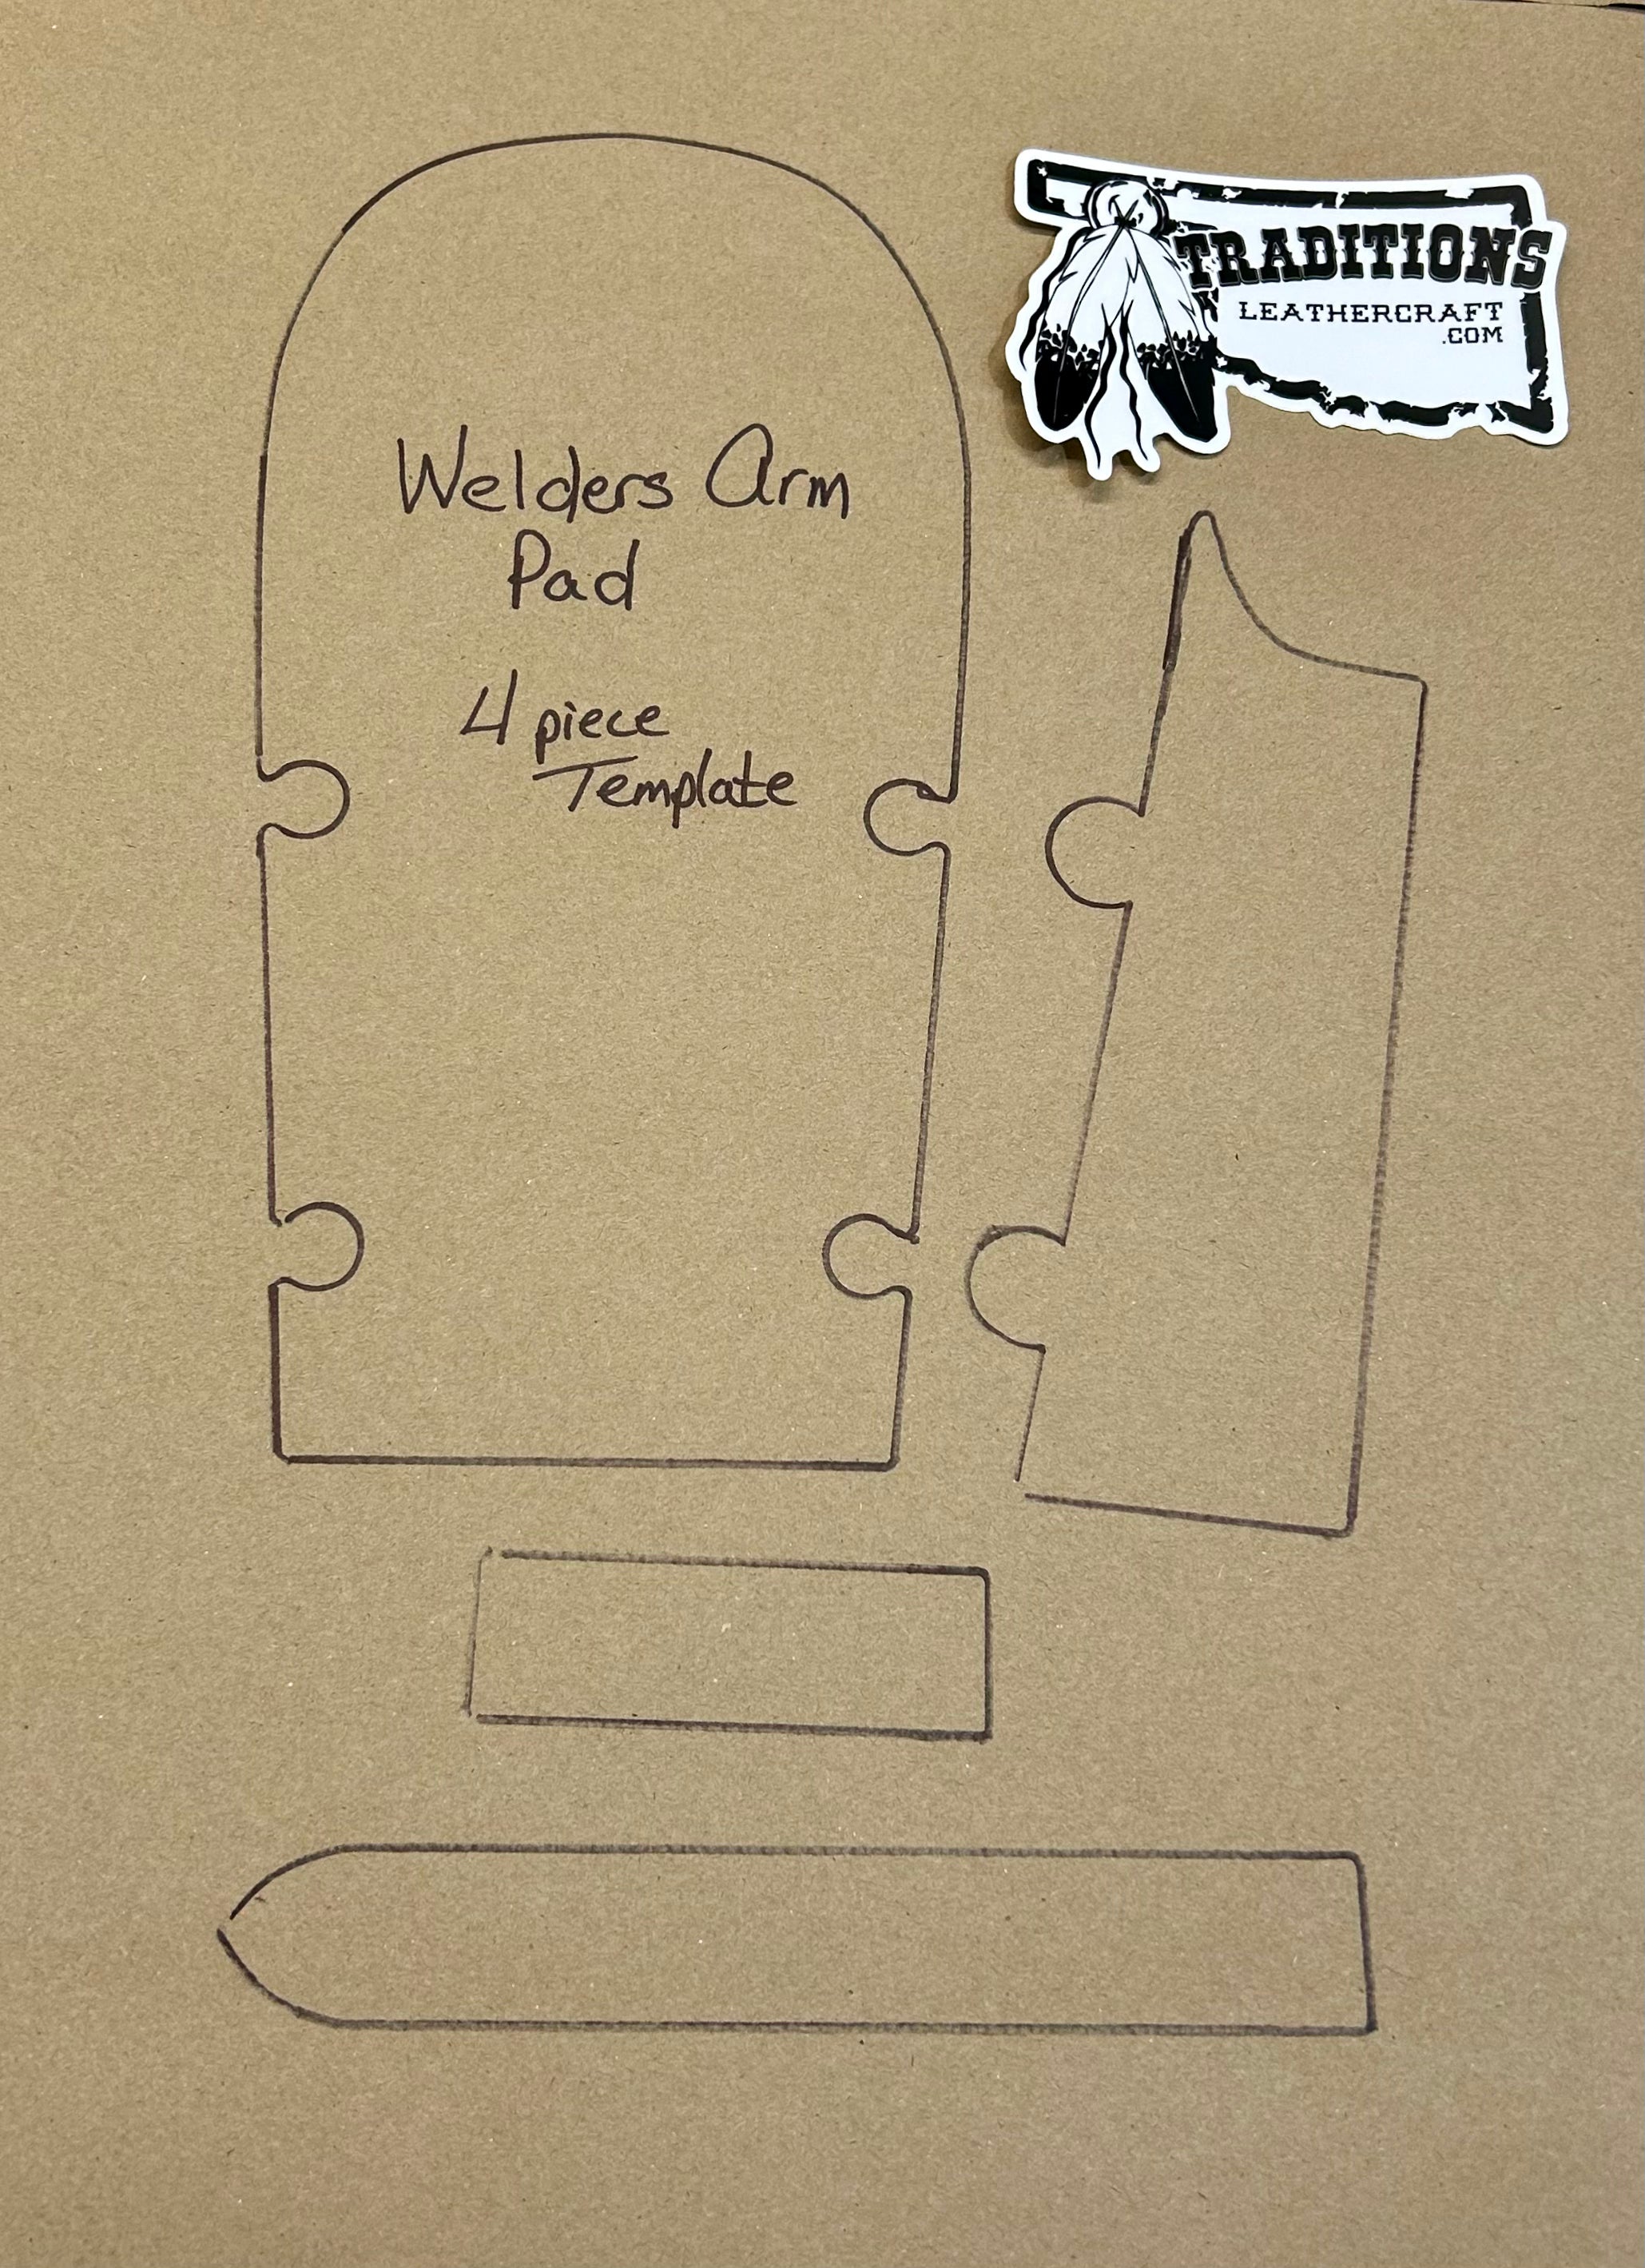 TRADITIONS
LEATHERCRAFT
.COM
Welders Arm
Pad
4 piece
Template